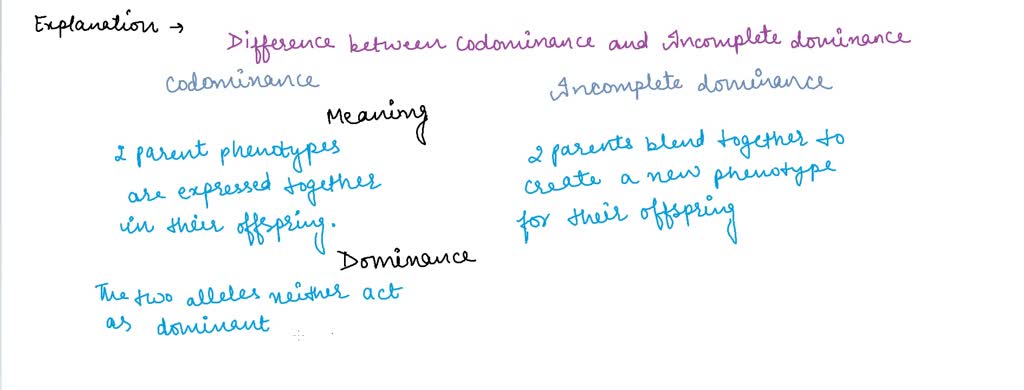 Explanation →
Difference between Codominance and Incomplete dominance
Codominance
Incomplete dominance
Meaning
2 parent phenotypes
are expressed together
in their offspring.
2 parents blend together to
create a new phenotype
for their offspring
Dominance
The two alleles neither act
as dominant